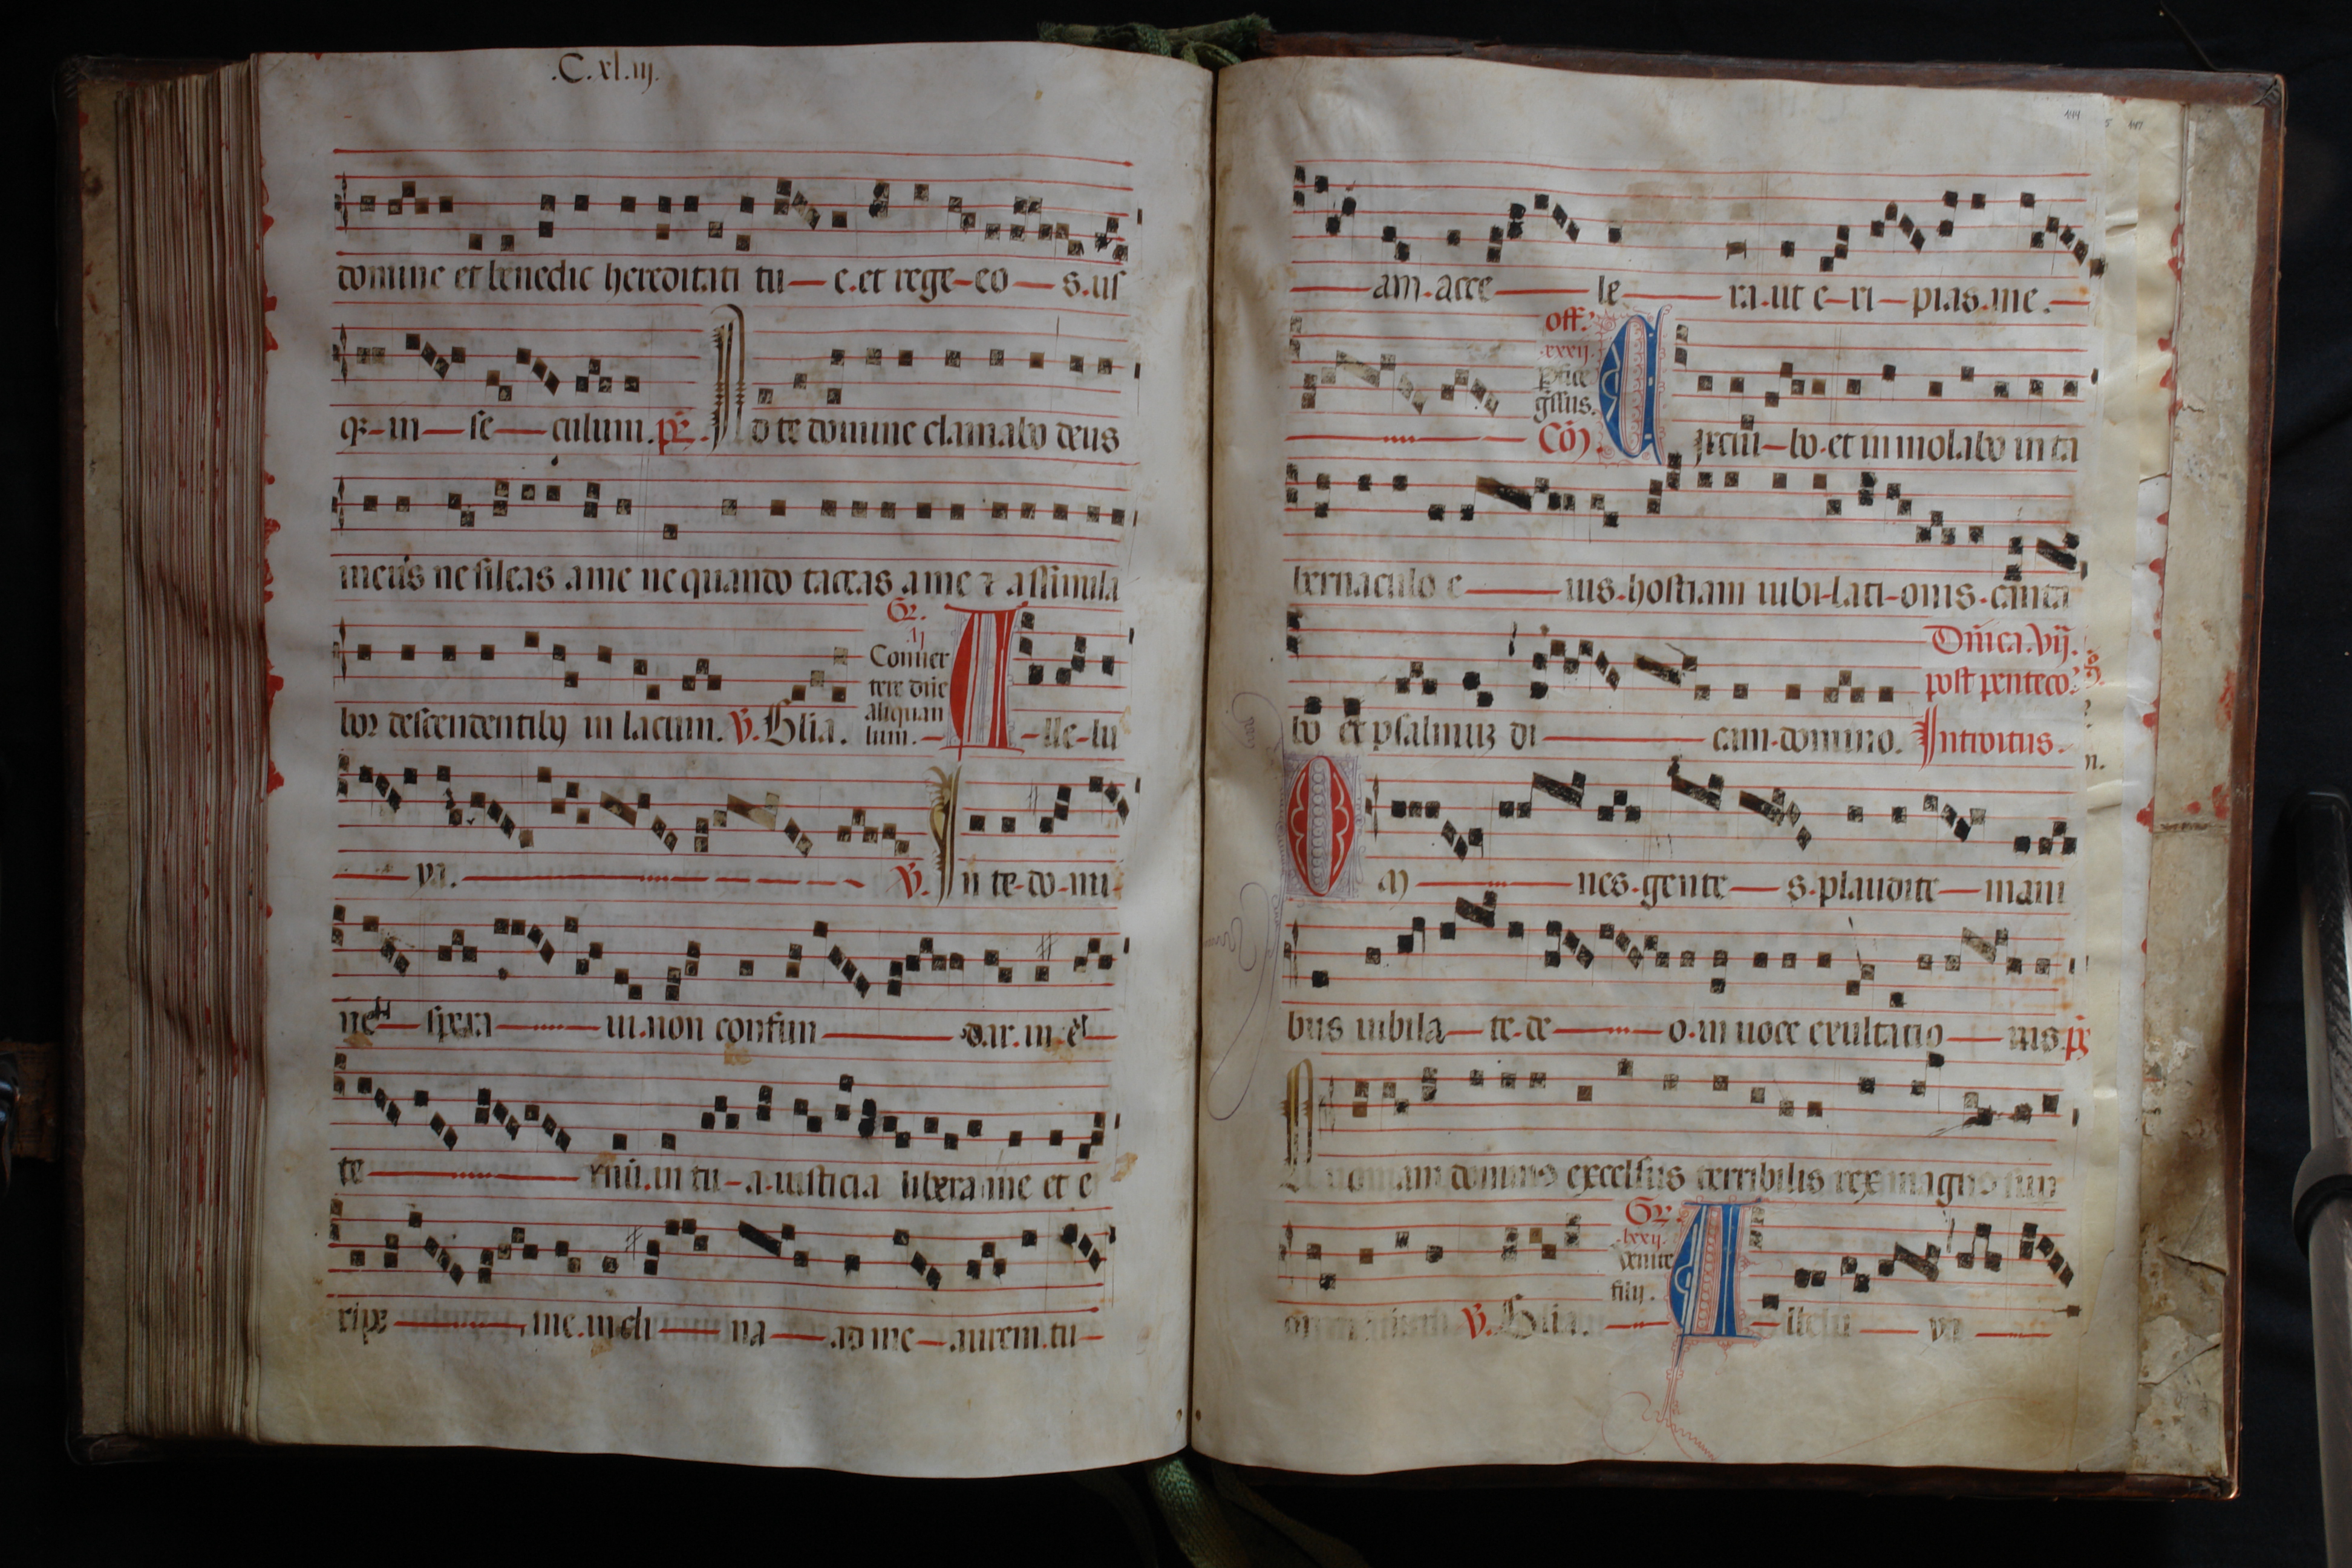 .C.xl.iij.
domine et benedic hereditati tu—e.et rege-eo—s.us
q3-in—se—culum. ps. Ad te domine clamabo deus
meus ne sileas a me ne quando taceas a me ⁊ assimila
bor descendentibȝ in lacum. V. Glia.
Gr.
.lj
Conuer
tere dñe
aliquan
lum.—
A-lle-lu
—ya.— V. In te-do-mi-
ne—spera—ui.non confun—dar.in.et—
te—rnū.in tu-a-iusticia libera me et e
ripe—me.incli—na—ad me—aurem.tu—
144
—am.acce—le—ra.ut e-ri-pias.me.—
off.
.xxxij.
Cōo.
Circui-bo.et immolabo in ta
bernaculo e—ius.hostiam iubi-lati-onis.canta
bo et psalmuȝ di—cam.domino.
Dñica.vij.
post penteco.
Introitus.
Om—nes.gente—s.plaudite—mani
bus iubila—te.de—o.in uoce exultatio—nis.ps
Quoniam dominus excelsus terribilis rex magnus sup
V. Glia.
Gr.
.lxxij.
Venite
filij.
A—llelu—ya—